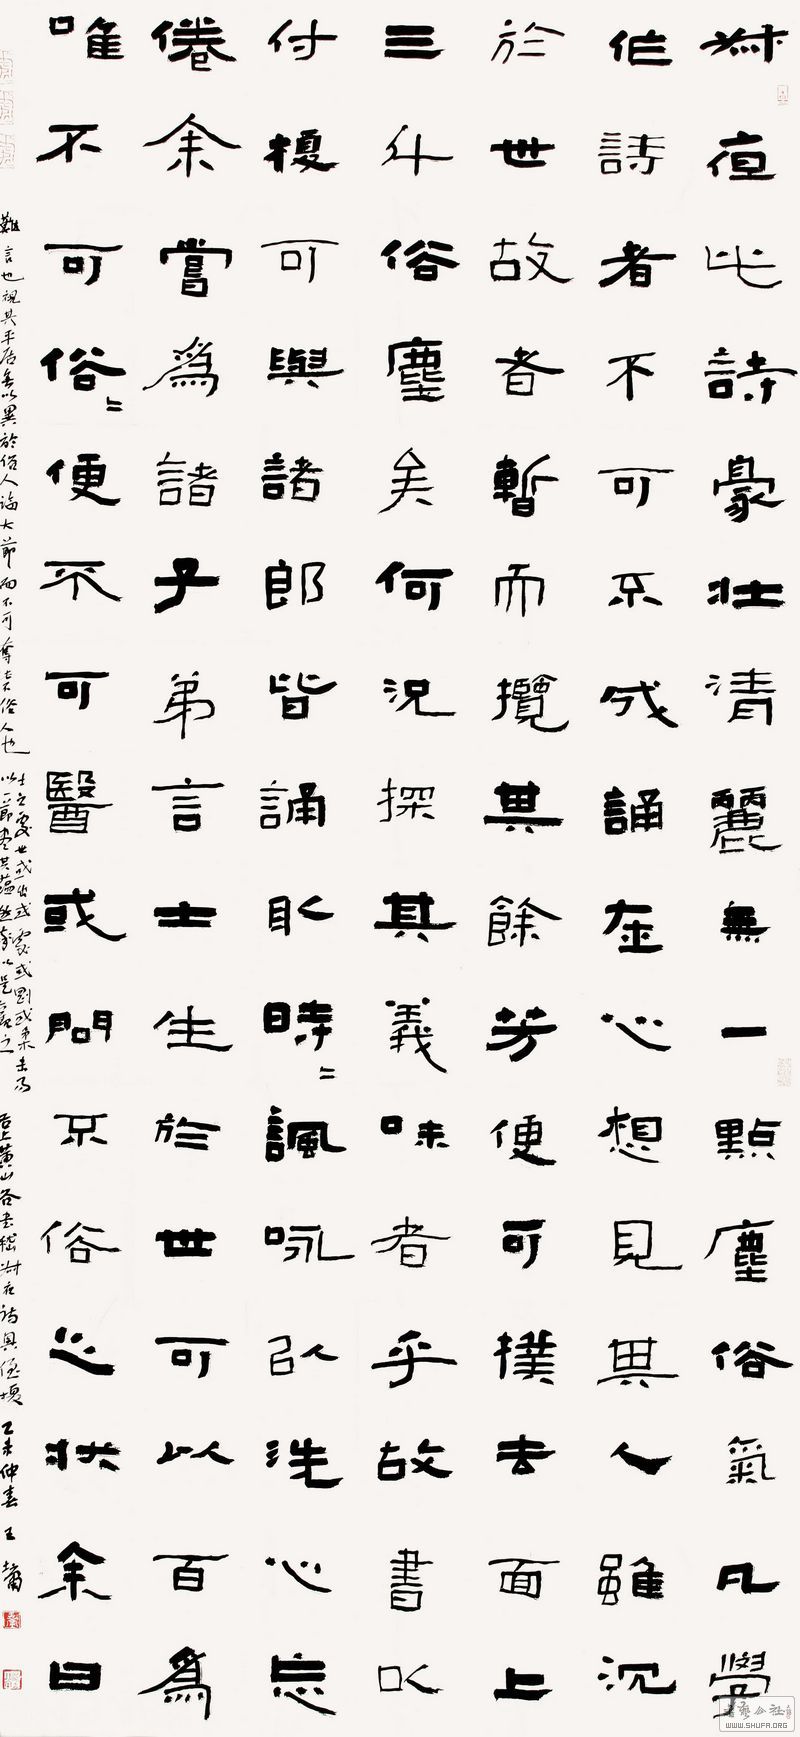 叔夜此詩豪壯清麗無一點塵俗氣凡學
作詩者不可不成誦在心想見其人雖沉
於世故者暫而攬其餘芳便可撲去面上
三斗俗塵矣何況探其義味者乎故書以
付榎可與諸郎皆誦取時〻諷咏以洗心忘
倦余嘗爲諸子弟言士生於世可以百爲
唯不可俗〻便不可醫或問不俗之狀余曰
難言也視其平居無以異於俗人臨大節而不可奪此不俗人也
士之處世或出或處或剛或柔未易
以一節盡其蘊然率以是觀之
右上黃山谷書嵇叔夜詩與侄榎 乙未仲春 王
WWW.SHUFA.ORG